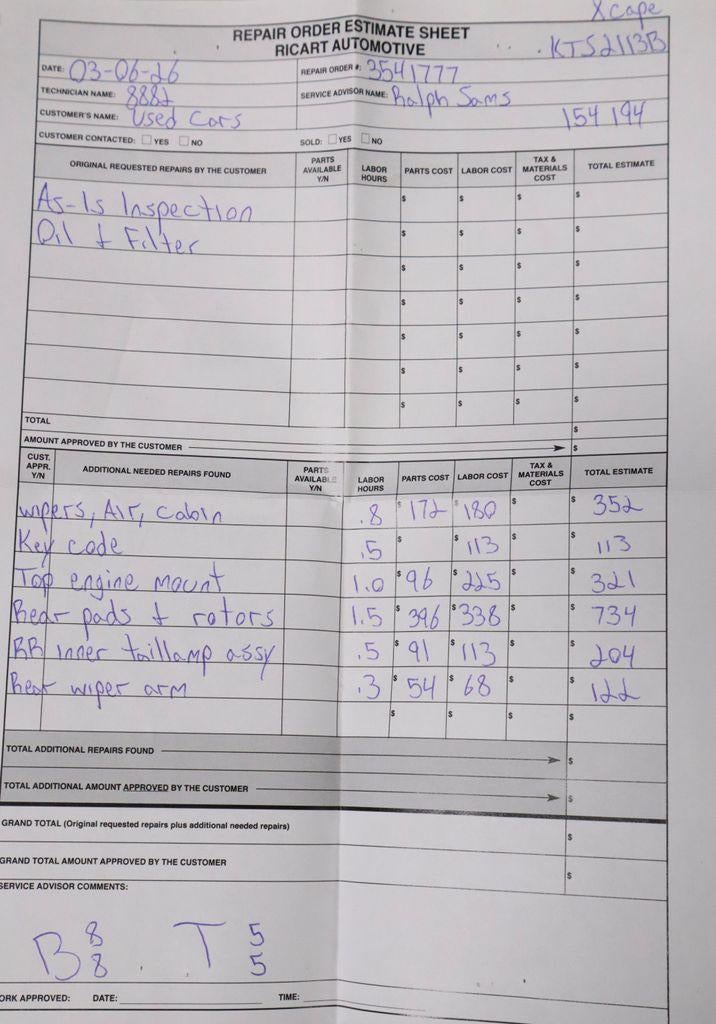 Xcape
REPAIR ORDER ESTIMATE SHEET
RICART AUTOMOTIVE
KTS2113B
DATE: 03-06-26
REPAIR ORDER #: 3541777
TECHNICIAN NAME: 8882
SERVICE ADVISOR NAME: Ralph Sams
CUSTOMER'S NAME: Used Cars
154 194
CUSTOMER CONTACTED: YES NO
SOLD: YES NO
ORIGINAL REQUESTED REPAIRS BY THE CUSTOMER PARTS AVAILABLE Y/N LABOR HOURS PARTS COST LABOR COST TAX & MATERIALS COST TOTAL ESTIMATE
As-Is Inspection $ $ $ $
Oil + Filter $ $ $ $
$ $ $ $
$ $ $ $
$ $ $ $
$ $ $ $
$ $ $ $
TOTAL $
AMOUNT APPROVED BY THE CUSTOMER $
CUST. APPR. Y/N ADDITIONAL NEEDED REPAIRS FOUND PARTS AVAILABLE Y/N LABOR HOURS PARTS COST LABOR COST TAX & MATERIALS COST TOTAL ESTIMATE
wipers, Air, cabin .8 $172 $180 $ $352
Key code .5 $ $113 $ $113
Top engine mount 1.0 $96 $225 $ $321
Rear pads + rotors 1.5 $396 $338 $ $734
RR inner taillamp assy .5 $91 $113 $ $204
Rear wiper arm .3 $54 $68 $ $122
$ $ $ $
TOTAL ADDITIONAL REPAIRS FOUND $
TOTAL ADDITIONAL AMOUNT APPROVED BY THE CUSTOMER $
GRAND TOTAL (Original requested repairs plus additional needed repairs) $
GRAND TOTAL AMOUNT APPROVED BY THE CUSTOMER $
SERVICE ADVISOR COMMENTS:
B 8 8 T 5 5
ORK APPROVED: DATE: TIME: